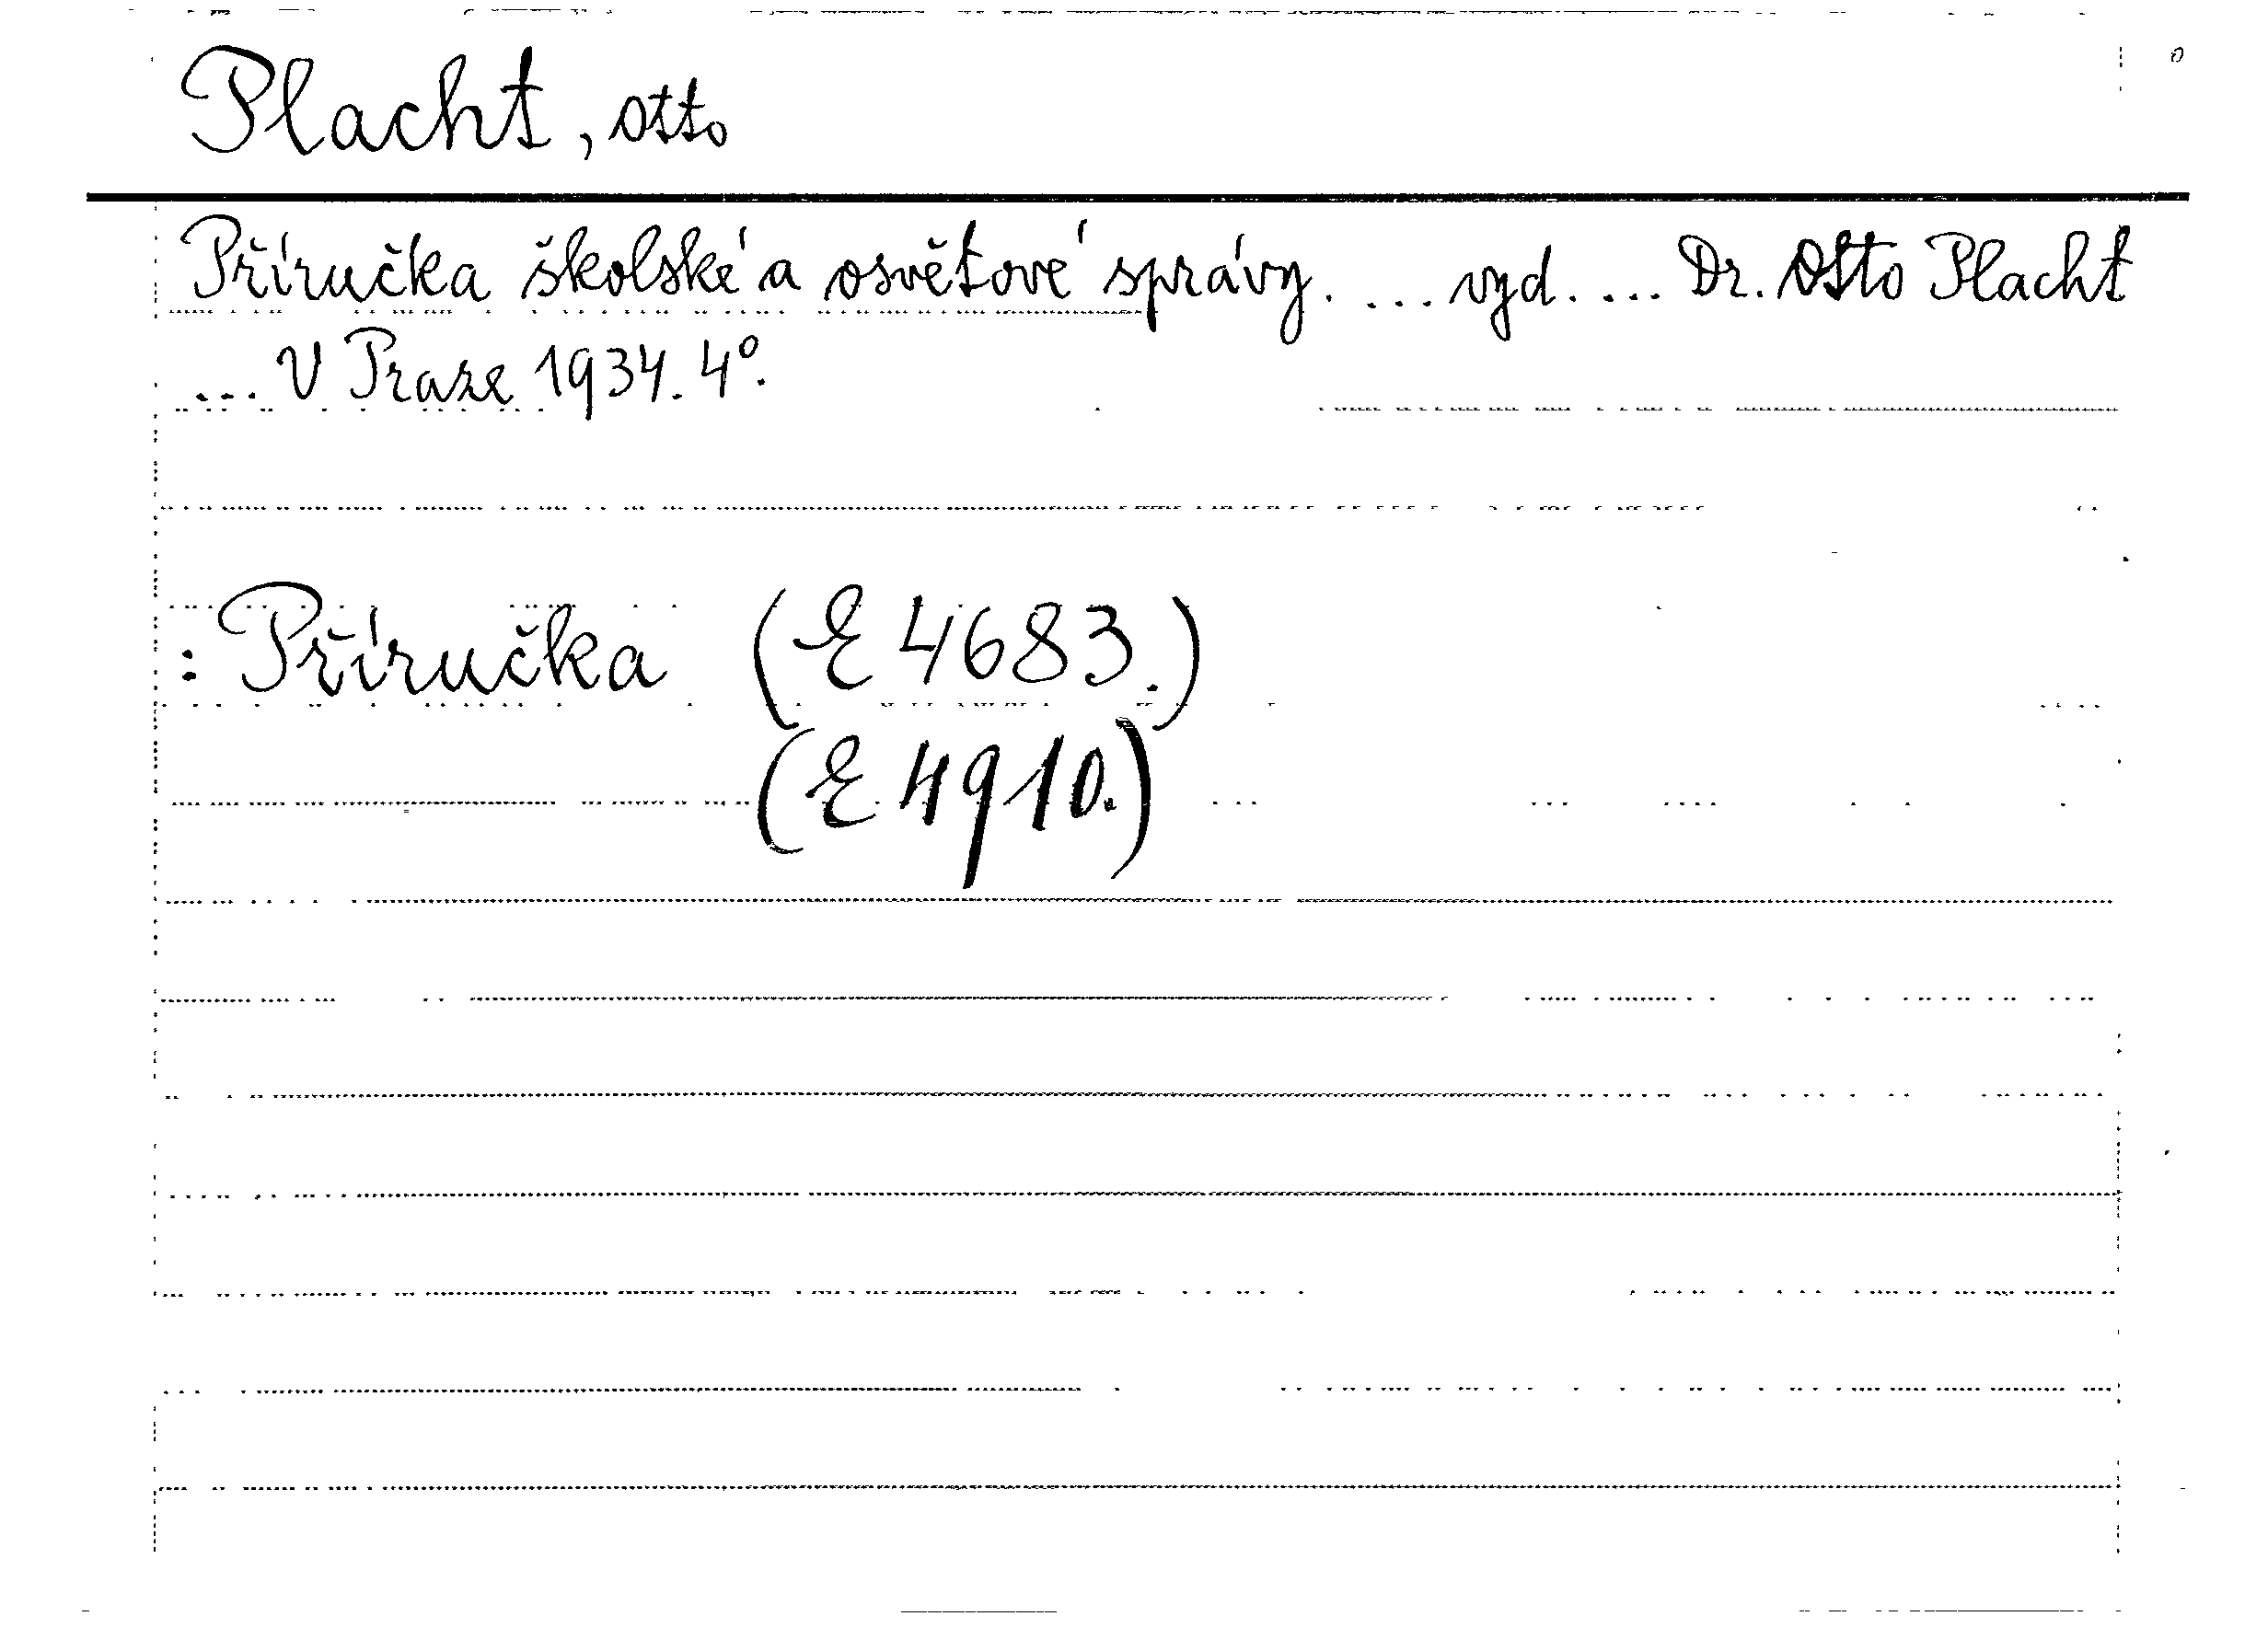 Placht, Otto
Příručka školské a osvětové správy. ... vyd. ... Dr. Otto Placht
... V Praze 1934. 4°.
: Příručka (E 4683.)
(E 4910.)